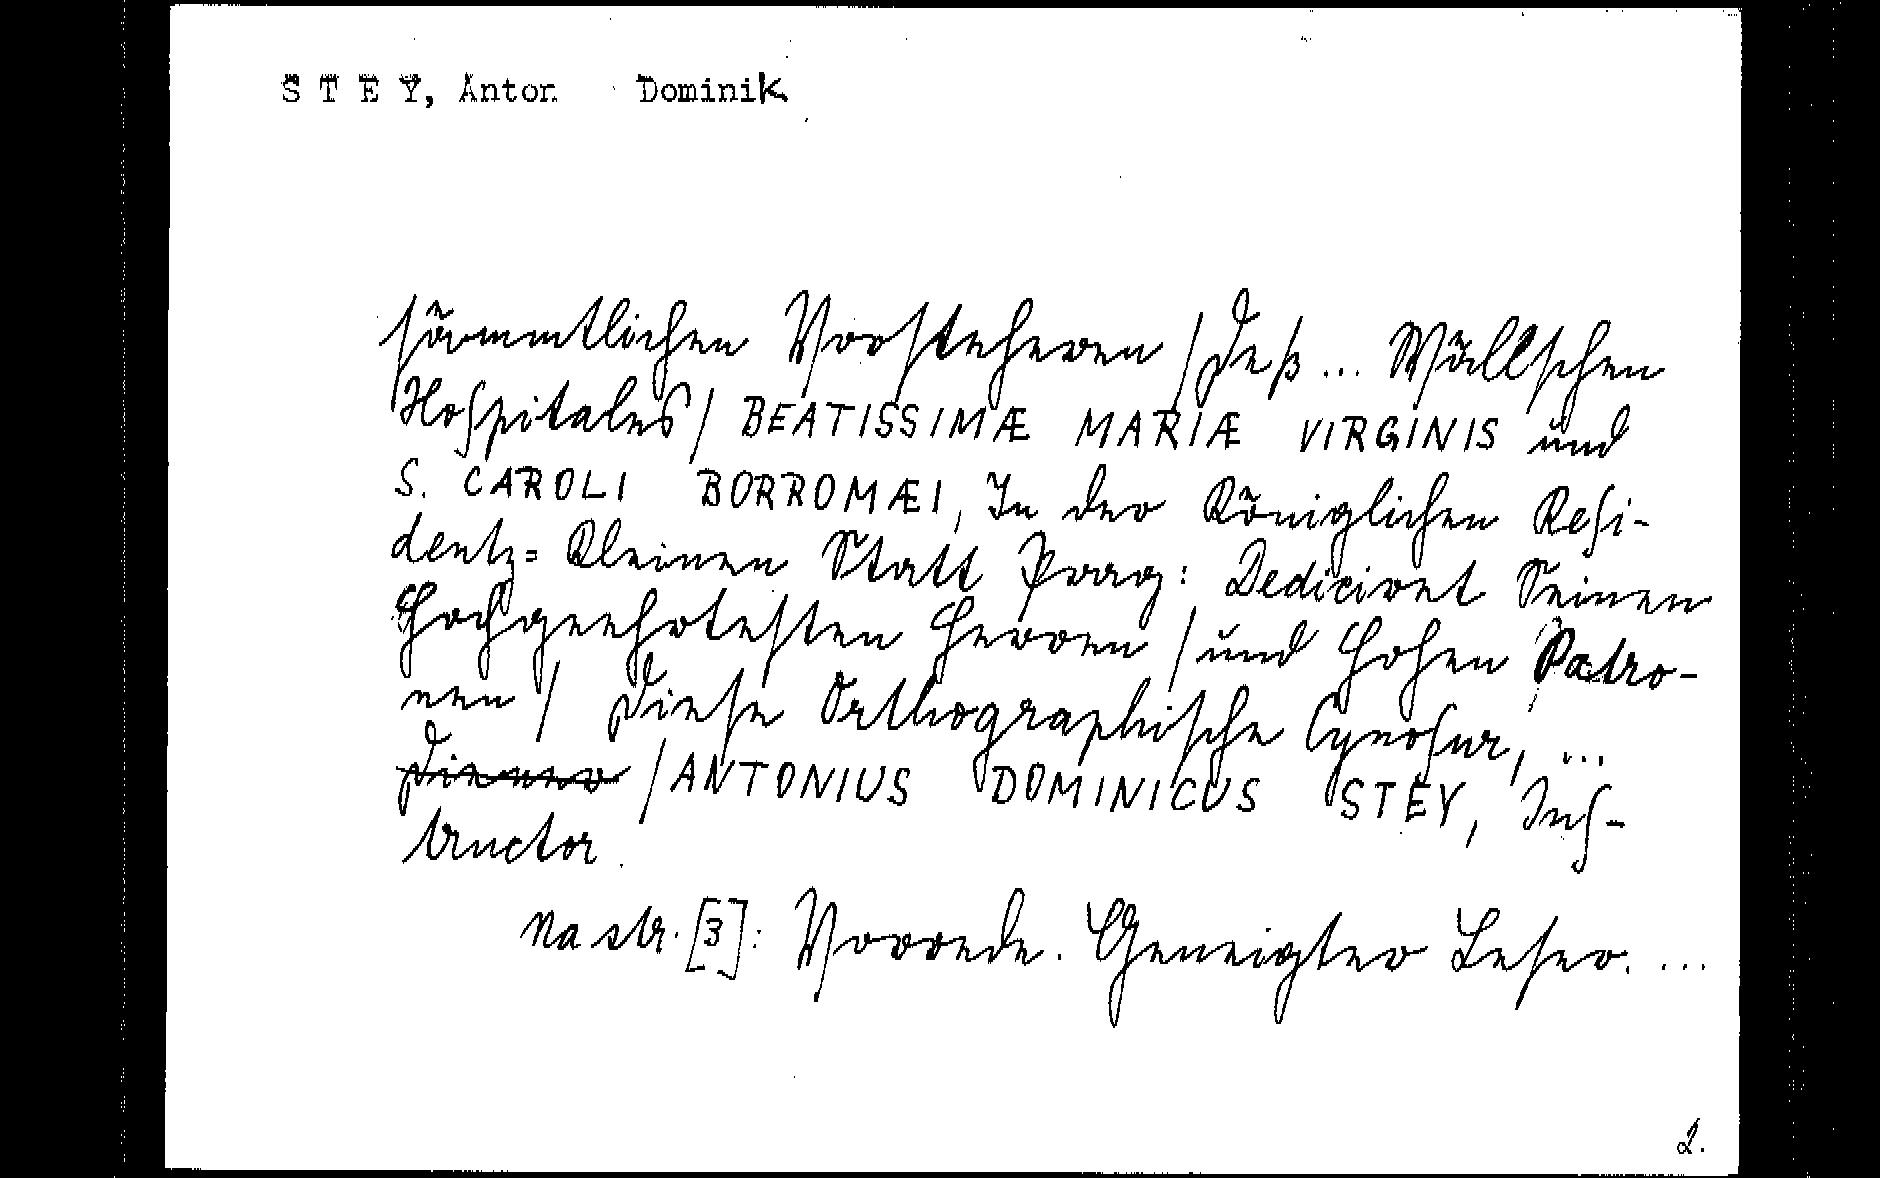 S T E Y, Anton Dominik
sämmtlichen Vorsteheren / deß ... Wällschen
Hospitales / BEATISSIMÆ MARIÆ VIRGINIS und
S. CAROLI BORROMÆI, In der Königlichen Resi-
dentz= Kleinen Statt Prag: Dediciret Seinen
Hochgeehrtesten Herren / und Hohen Patro-
nen / diese Orthographische Cynosur, ...
/ ANTONIUS DOMINICUS STEY, Ins-
tructor.
Na str. [3]: Vorrede. Geneigter Leser. ...
2.